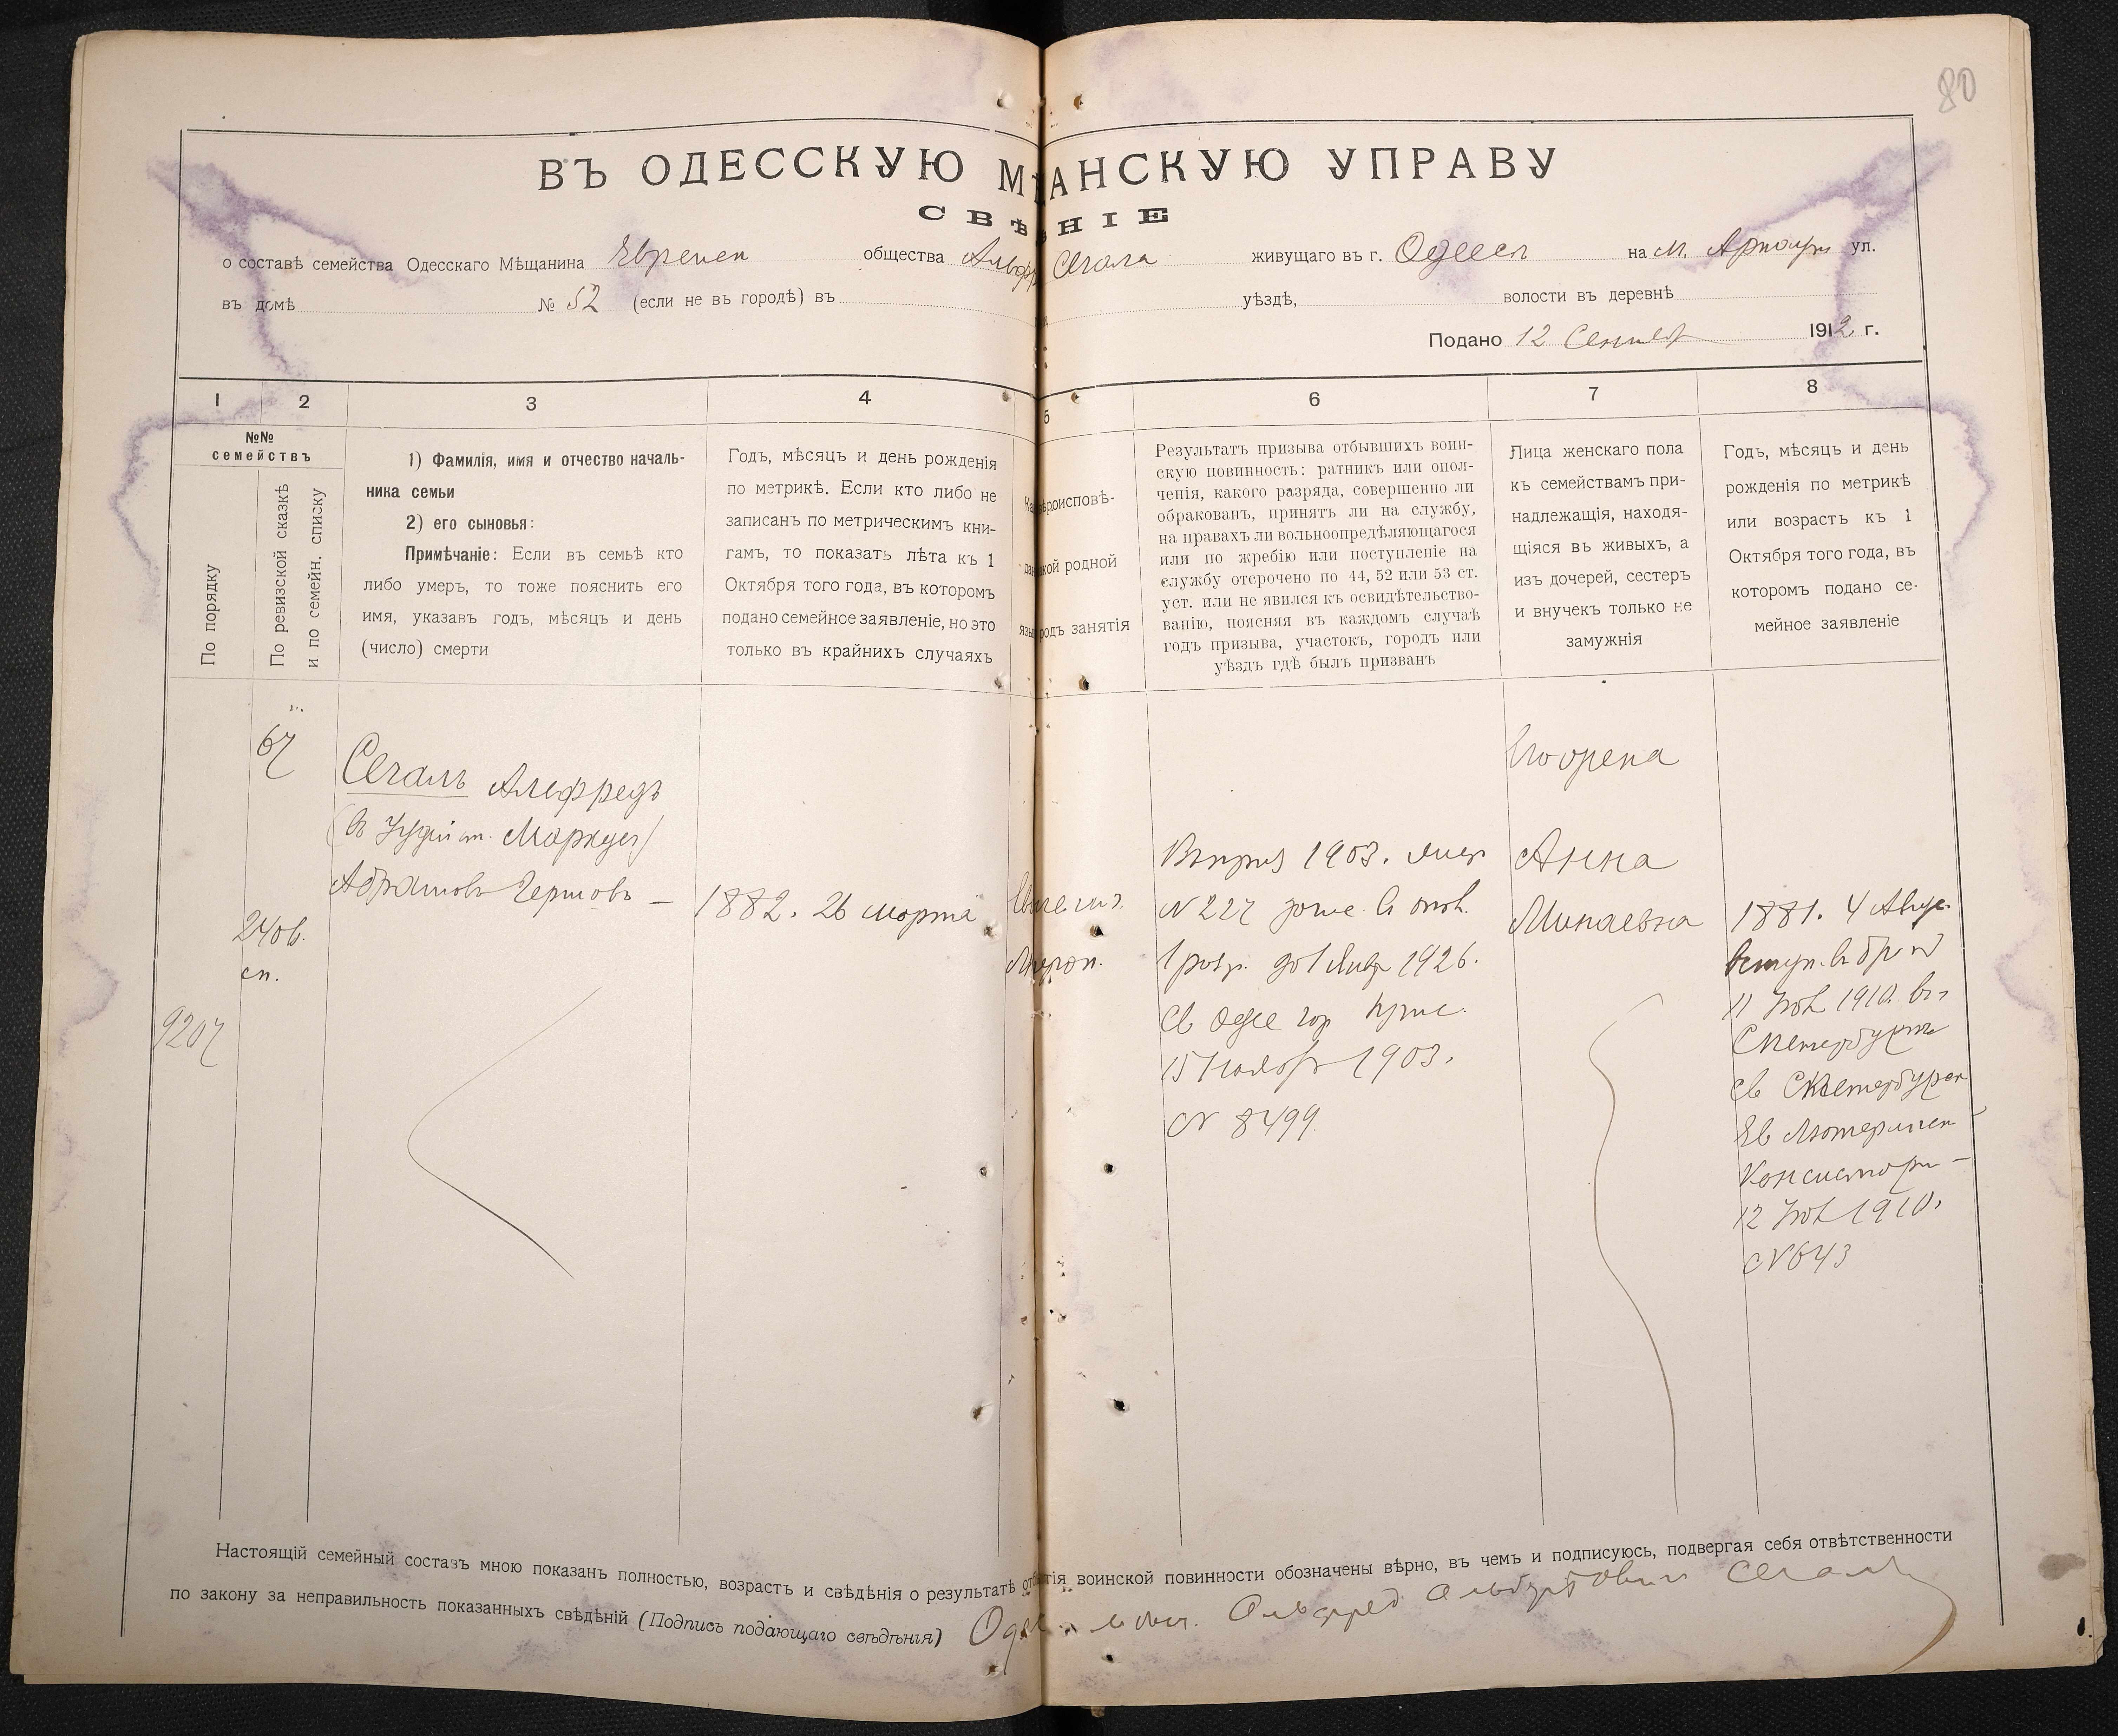 80
ВЪ ОДЕССКУЮ М АНСКУЮ УПРАВУ
СВѢ НІЕ
о составѣ семейства Одесскаго Мѣщанина общества Сегала живущаго въ г. Одессѣ на М. ул.
въ домѣ № 52 (если не въ городѣ) въ уѣздѣ, волости въ деревнѣ
Подано 12 1912 г.
1 2 3 4 5 6 7 8
№№
семействъ
По порядку
По ревизской сказкѣ
и по семейн. списку
1) Фамилія, имя и отчество началь-
ника семьи
2) его сыновья:
Примѣчаніе: Если въ семьѣ кто
либо умеръ, то тоже пояснить его
имя, указавъ годъ, мѣсяцъ и день
(число) смерти
Годъ, мѣсяцъ и день рожденія
по метрикѣ. Если кто либо не
записанъ по метрическимъ кни-
гамъ, то показать лѣта къ 1
Октября того года, въ которомъ
подано семейное заявленіе, но это
только въ крайнихъ случаяхъ
Ка вѣроисповѣ-
да кой родной
язы родъ занятія
Результатъ призыва отбывшихъ воин-
скую повинность: ратникъ или опол-
ченія, какого разряда, совершенно ли
обракованъ, принятъ ли на службу,
на правахъ ли вольноопредѣляющагося
или по жребію или поступленіе на
службу отсрочено по 44, 52 или 53 ст.
уст. или не явился къ освидѣтельство-
ванію, поясняя въ каждомъ случаѣ
годъ призыва, участокъ, городъ или
уѣздъ гдѣ былъ призванъ
Лица женскаго пола
къ семействамъ при-
надлежащія, находя-
щіяся въ живыхъ, а
изъ дочерей, сестеръ
и внучекъ только не
замужнія
Годъ, мѣсяцъ и день
рожденія по метрикѣ
или возрастъ къ 1
Октября того года, въ
которомъ подано се-
мейное заявленіе
67
240в.
сп.
9207
Сегалъ Альфредъ
Абрамовъ Гершовъ —
1882. 26 марта
1903.
N 227
1 разр. до 1 Янв 1926.
Св Одес гор
15 Ноябр 1903.
N 8499.
Его жена
Анна
Минаевна
1881. 4 Авгус.
вступ. въ бр
11 1910. въ
СПетербургѣ
св СПетербургск
Ев Лютеранск
Консистори —
12 1910.
N 643
Настоящій семейный составъ мною показанъ полностью, возрастъ и свѣдѣнія о результатѣ отбытія воинской повинности обозначены вѣрно, въ чемъ и подписуюсь, подвергая себя отвѣтственности
по закону за неправильность показанныхъ свѣдѣній (Подпись подающаго свѣдѣнія) Альфред Сегаль